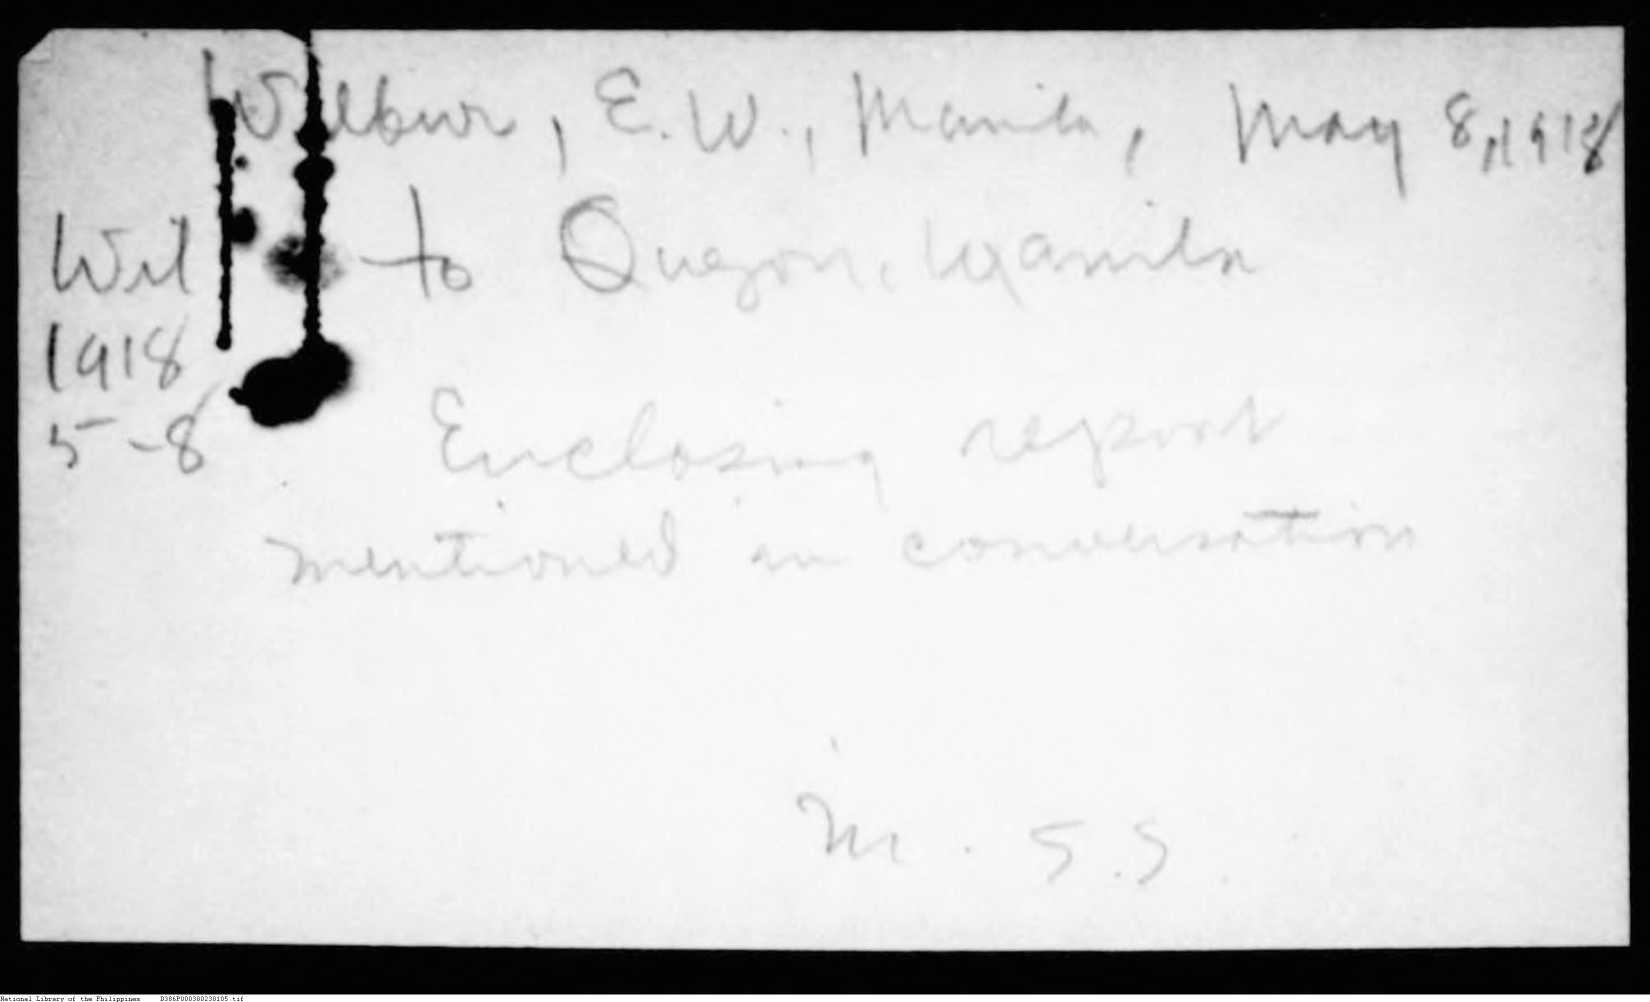 Wilbur, E. W., Manila, May 8, 1918
Wil to Quezon, Manila
1918
5-8
Enclosing report
mentioned in conversation
M. S. S.
National Library of the Philippines D386P000380238105.tif